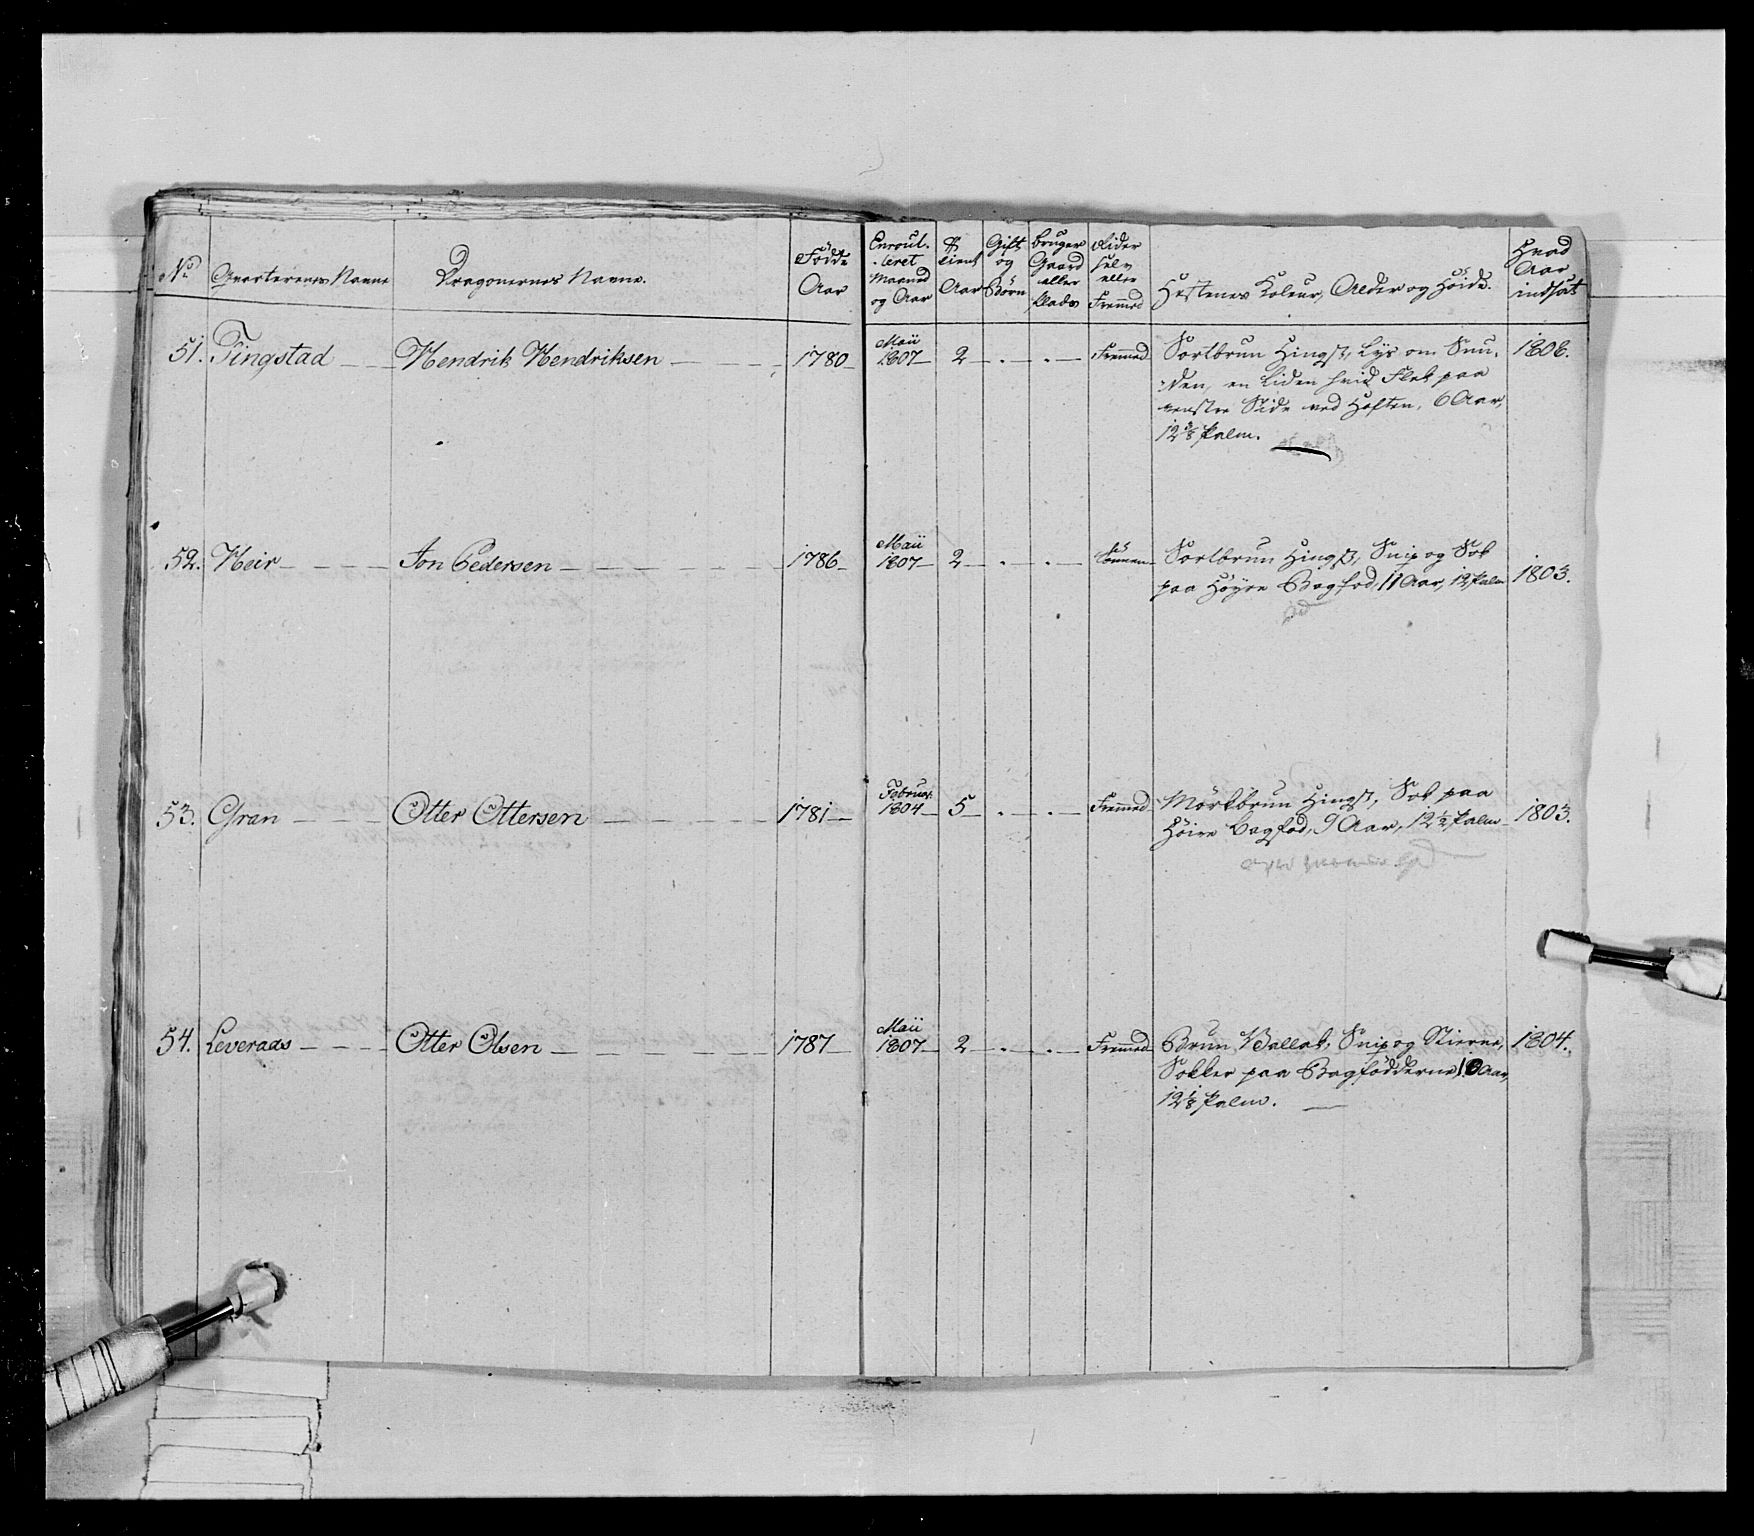 No
Qvarterenes Navne
Dragonernes Navne.
Födde
Aar
Enroul-
leret
Maaned
og Aar
tient
Aar
Gift
og
Börn
Bruger
Gaard
eller
Plads
Rider
selv
eller
Fremed
Hestenes Koleur, Alder og Höide.
Hvad
Aar
indsat
51. Tingstad — Hendrik Hendriksen — 1780 — Maii 1807 — 2 — . — . — Fremed
Sortbrun Hingst, Lys om Snu-
den, en liden hvid Flek paa
venstre Side ved Hoften, 6 Aar,
12 3/8 Palm.
1806.
52. Heir — Jon Pedersen — 1786 — Maii 1807 — 2 — . — . —
Sortbrun Hingst, Snip og Sok
paa Höyre Bagfod, 11 Aar, 12 Palm
1803.
53. Gran — Otter Ottersen — 1781 — Februar 1804 — 5 — . — . — Fremed
Mörkbrun Hingst, Sok paa
Höire Bagfod, 9 Aar, 12 1/2 Palm
1803.
54. Leveraas — Otter Olsen — 1787 — Maii 1807 — 2 — . — . — Fremed
Brun Vallak, Snip og Stierne,
Sokker paa Bagfödderne, 10 Aar,
12 1/8 Palm.
1804.